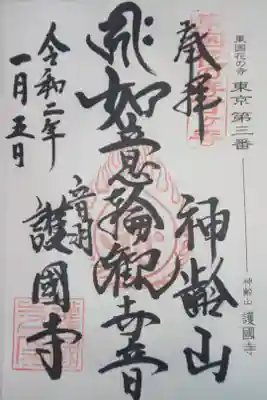 東国花の寺
東京 第三番
神齢山 護國寺
奉拝
神齢山
如意輪観世音
音羽
護國寺
令和二年
一月五日